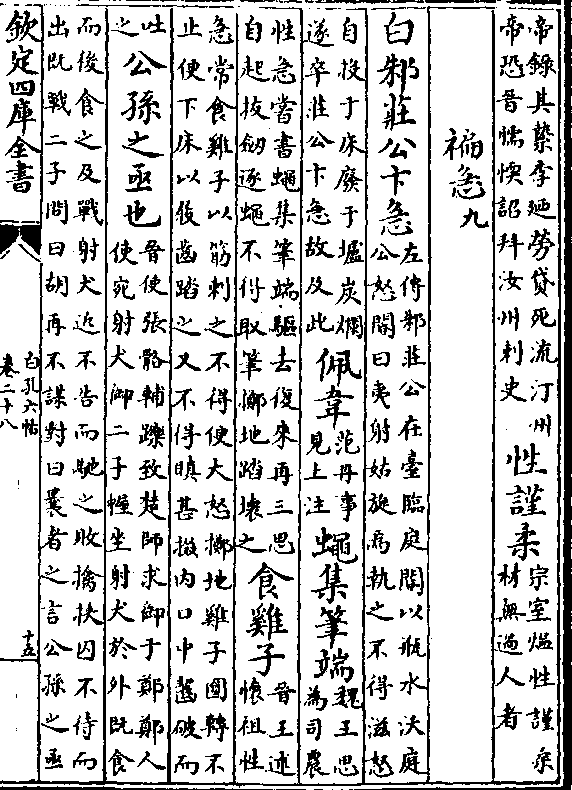 帝錄其摯李廼勞貸死流汀州
帝恐晉懦愞詔拜汝州刺史
性謹柔
宗室煴性謹柔
材無過人者
褊急九
白
邾莊公卞急
左傳邾莊公在臺臨庭閽以瓶水沃庭
公怒閽曰夷射姑旋焉執之不得滋怒
自投于床廢于爐炭爛
遂卒莊公卞急故及此
佩韋
范冉事
見上注
蠅集筆端
魏王思
為司農
性急嘗書蠅集筆端驅去復來再三思
自起拔劒逐蠅不得取筆擲地踏壞之
食雞子
晉王述
懷祖性
急常食雞子以筋刺之不得便大怒擲地雞子圓轉不
止便下床以後齒踏之又不得瞋甚掇内口中齧破而
吐
之
公孫之亟也
晉使張骼輔躒致楚師求御于鄭鄭人
使宛射犬御二子幄坐射犬於外既食
而後食之及戰射犬近不告而馳之收擒挾囚不待而
出既戰二子問曰胡再不謀對曰曩者之言公孫之亟
欽定四庫全書
白孔六帖
卷二十八
十五